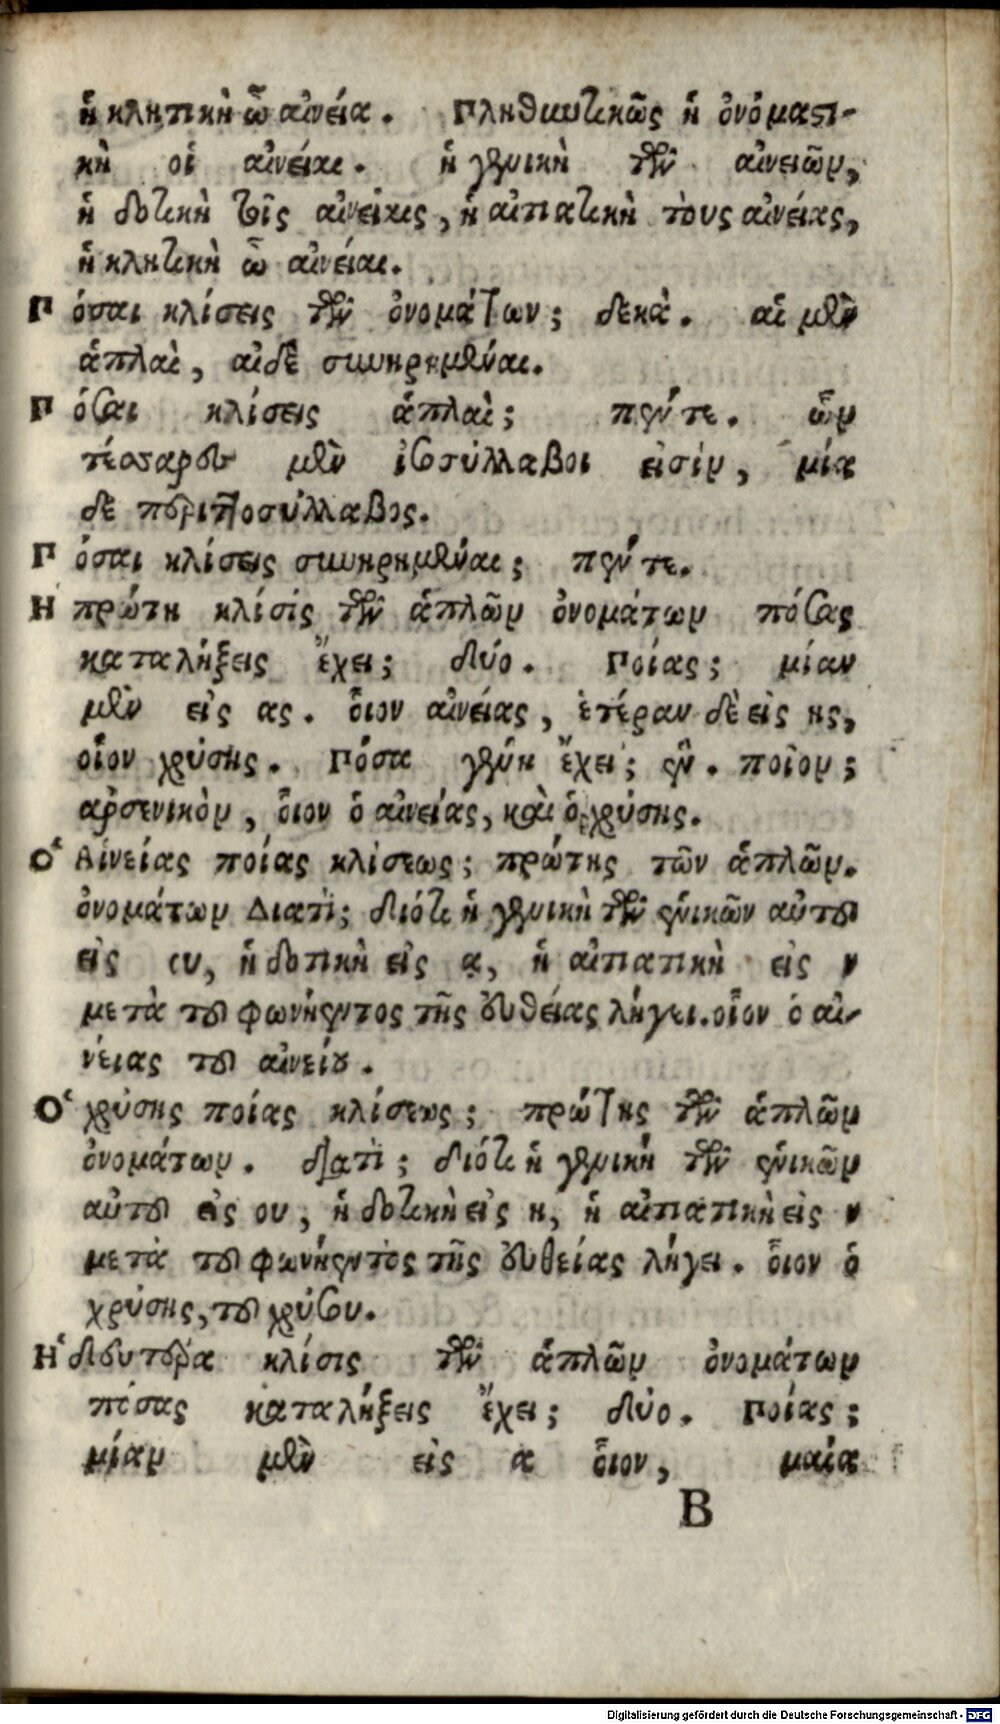 ἡ κλητικὴ ὦ αἰνεία. Πληθυντικῶς ἡ ὀνόμαστι-
κὴ οἱ αἰνείαι. ἡ γενικὴ τῶν αἰνειῶν,
ἡ δοτικὴ τοῖς αἰνείαις, ἡ αἰτιατικὴ τοὺς αἰνείας,
ἡ κλητικὴ ὦ αἰνείαι.
Πόσαι κλίσεις τῶν ὀνομάτων; δεκά. αἱ μὲν
ἁπλαὶ, αἱ δὲ συνηρημέναι.
Πόσαι κλίσεις ἁπλαὶ; πέντε. ὧν
τέσσαρες μὲν ἰσοσύλλαβοι εἰσίν, μία
δὲ περιττοσύλλαβος.
Πόσαι κλίσεις συνηρημέναι; πέντε.
Η πρώτη κλίσίς τῶν ἁπλῶν ὀνομάτων πόσας
καταλήξεις ἔχει; δύο. Ποίας; μίαν
μὲν εἰς ας. οἷον αἰνείας, ἑτέραν δὲ εἰς ης,
οἷον χρύσης. Πόσα γένη ἔχει; ἕν. ποῖον;
ἀρσενικὸν, οἷον ὁ αἰνείας, καὶ ὁ χρύσης.
Ὁ Αἰνείας ποίας κλίσεως; πρώτης τῶν ἁπλῶν.
ὀνομάτων Διατὶ; διότι ἡ γενικὴ τῶν ἑνικῶν αὐτοῦ
εἰς ου, ἡ δοτικὴ εἰς ᾳ, ἡ αἰτιατικὴ εἰς ν
μετὰ τοῦ φωνήεντος τῆς εὐθείας λήγει. οἷον ὁ αἰ-
νείας τοῦ αἰνείου.
Ὁ χρύσης ποίας κλίσεως; πρώτης τῶν ἁπλῶν
ὀνομάτων. διατὶ; διότι ἡ γενικὴ τῶν ἑνικῶν
αὐτοῦ εἰς ου, ἡ δοτικὴ εἰς η, ἡ αἰτιατικὴ εἰς ν
μετὰ τοῦ φωνήεντὸς τῆς εὐθείας λήγει. οἷον ὁ
χρύσης, τοῦ χρύσου.
Ἡ δευτέρα κλίσις τῶν ἁπλῶν ὀνομάτων
πόσας καταλήξεις ἔχει; δύο. Ποίας;
μίαν μὲν εἰς α οἷον, μαία
B
Digitalisierung gefördert durch die Deutsche Forschungsgemeinschaft - DFG